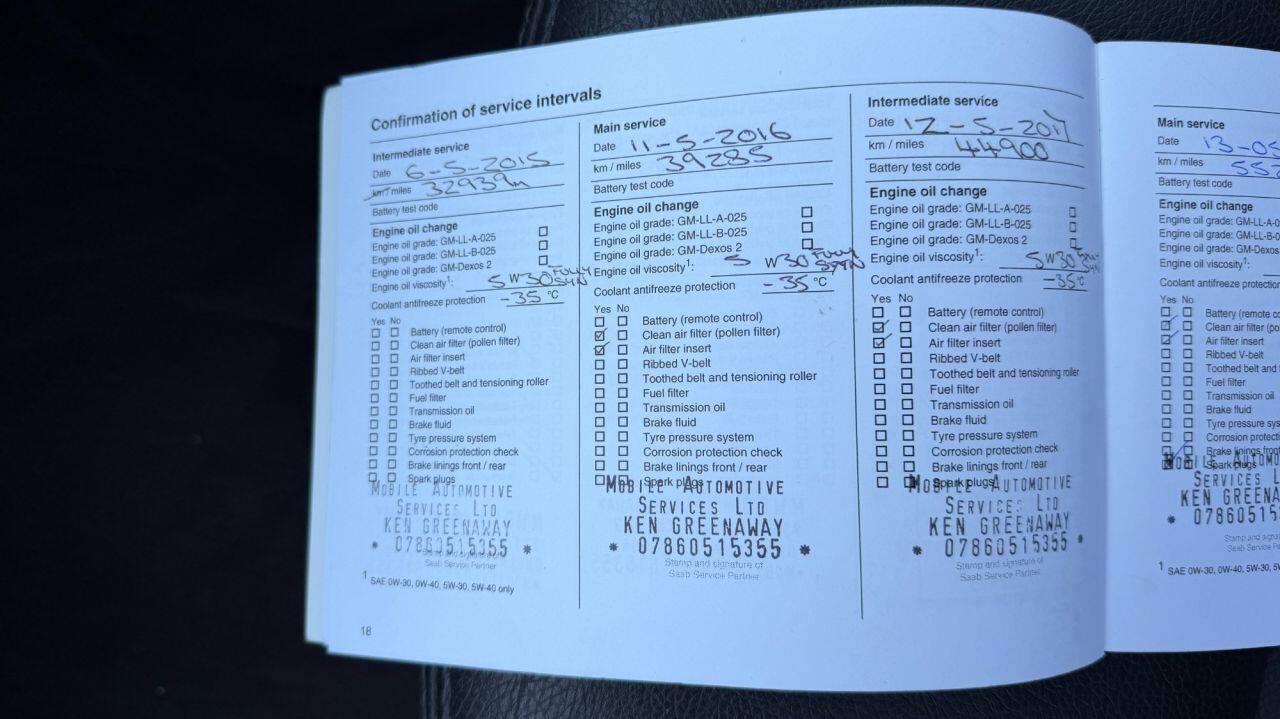 Confirmation of service intervals
Intermediate service
Date 6-5-2015
km / miles 32939m
Battery test code
Engine oil change
Engine oil grade: GM-LL-A-025
Engine oil grade: GM-LL-B-025
Engine oil grade: GM-Dexos 2
Engine oil viscosity1: 5 W30 Fully Syn
Coolant antifreeze protection -35 °C
Yes No
Battery (remote control)
Clean air filter (pollen filter)
Air filter insert
Ribbed V-belt
Toothed belt and tensioning roller
Fuel filter
Transmission oil
Brake fluid
Tyre pressure system
Corrosion protection check
Brake linings front / rear
Spark plugs
MOBILE AUTOMOTIVE
SERVICES LTD
KEN GREENAWAY
* 07860515355 *
Stamp and signature of
Saab Service Partner
1 SAE 0W-30, 0W-40, 5W-30, 5W-40 only
18
Main service
Date 11-5-2016
km / miles 39285
Battery test code
Engine oil change
Engine oil grade: GM-LL-A-025
Engine oil grade: GM-LL-B-025
Engine oil grade: GM-Dexos 2
Engine oil viscosity1: 5 W30 Fully Syn
Coolant antifreeze protection -35 °C
Yes No
Battery (remote control)
Clean air filter (pollen filter)
Air filter insert
Ribbed V-belt
Toothed belt and tensioning roller
Fuel filter
Transmission oil
Brake fluid
Tyre pressure system
Corrosion protection check
Brake linings front / rear
Spark plugs
MOBILE AUTOMOTIVE
SERVICES LTD
KEN GREENAWAY
* 07860515355 *
Stamp and signature of
Saab Service Partner
Intermediate service
Date 12-5-2017
km / miles 44900
Battery test code
Engine oil change
Engine oil grade: GM-LL-A-025
Engine oil grade: GM-LL-B-025
Engine oil grade: GM-Dexos 2
Engine oil viscosity1: 5 W30 Fully Syn
Coolant antifreeze protection -35°C
Yes No
Battery (remote control)
Clean air filter (pollen filter)
Air filter insert
Ribbed V-belt
Toothed belt and tensioning roller
Fuel filter
Transmission oil
Brake fluid
Tyre pressure system
Corrosion protection check
Brake linings front / rear
Spark plugs
MOBILE AUTOMOTIVE
SERVICES LTD
KEN GREENAWAY
* 07860515355 *
Stamp and signature of
Saab Service Partner
Main service
Date 13-05
km / miles 552
Battery test code
Engine oil change
Engine oil grade: GM-LL-A-0
Engine oil grade: GM-LL-B-0
Engine oil grade: GM-Dexos
Engine oil viscosity1:
Coolant antifreeze protection
Yes No
Battery (remote co
Clean air filter (p
Air filter insert
Ribbed V-belt
Toothed belt and
Fuel filter
Transmission oil
Brake fluid
Tyre pressure sys
Corrosion protect
Brake linings front
Spark plugs
MOBILE AUTOMO
SERVICES L
KEN GREENA
* 07860515
Stamp and signat
Saab Service P
1 SAE 0W-30, 0W-40, 5W-30, 5W